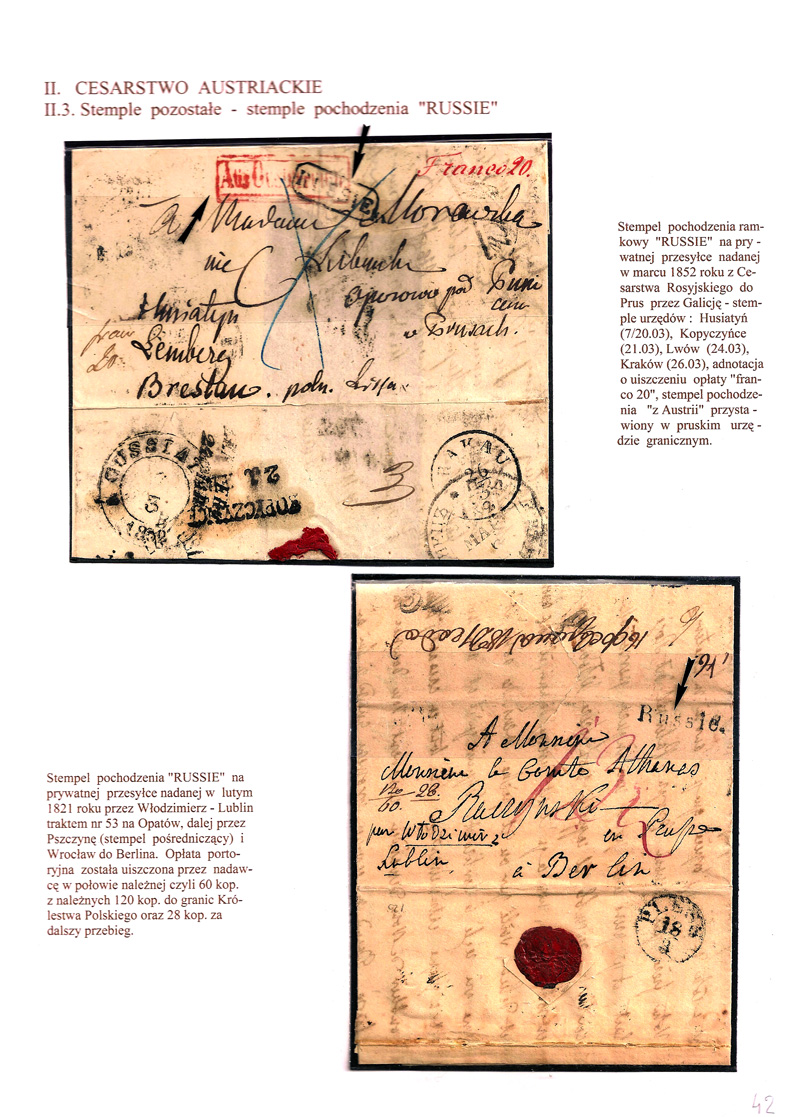 II. CESARSTWO AUSTRIACKIE
II.3. Stemple pozostałe - stemple pochodzenia "RUSSIE"
Franco 20.
A Madame Morawska
née
Oporowo pod
w Prusach.
Husiatyn
franco
20
Lemberg
Breslau. poln. Lissa
HUSSIATYN
KOPICZYNCE
KRAKAU
3
Stempel pochodzenia ram-
kowy "RUSSIE" na pry -
watnej przesyłce nadanej
w marcu 1852 roku z Ce-
sarstwa Rosyjskiego do
Prus przez Galicję - stem-
ple urzędów : Husiatyń
(7/20.03), Kopyczyńce
(21.03), Lwów (24.03),
Kraków (26.03), adnotacja
o uiszczeniu opłaty "fran-
co 20", stempel pochodze-
nia "z Austrii" przysta -
wiony w pruskim urzę -
dzie granicznym.
Russie.
A Monsieur
Monsieur le Comte Athanas
Raczynski
par Włodzimierz
en Prusse
Lublin
à Berlin
PLESS
18
Stempel pochodzenia "RUSSIE" na
prywatnej przesyłce nadanej w lutym
1821 roku przez Włodzimierz - Lublin
traktem nr 53 na Opatów, dalej przez
Pszczynę (stempel pośredniczący) i
Wrocław do Berlina. Opłata porto-
ryjna została uiszczona przez nadaw-
cę w połowie należnej czyli 60 kop.
z należnych 120 kop. do granic Kró-
lestwa Polskiego oraz 28 kop. za
dalszy przebieg.
42